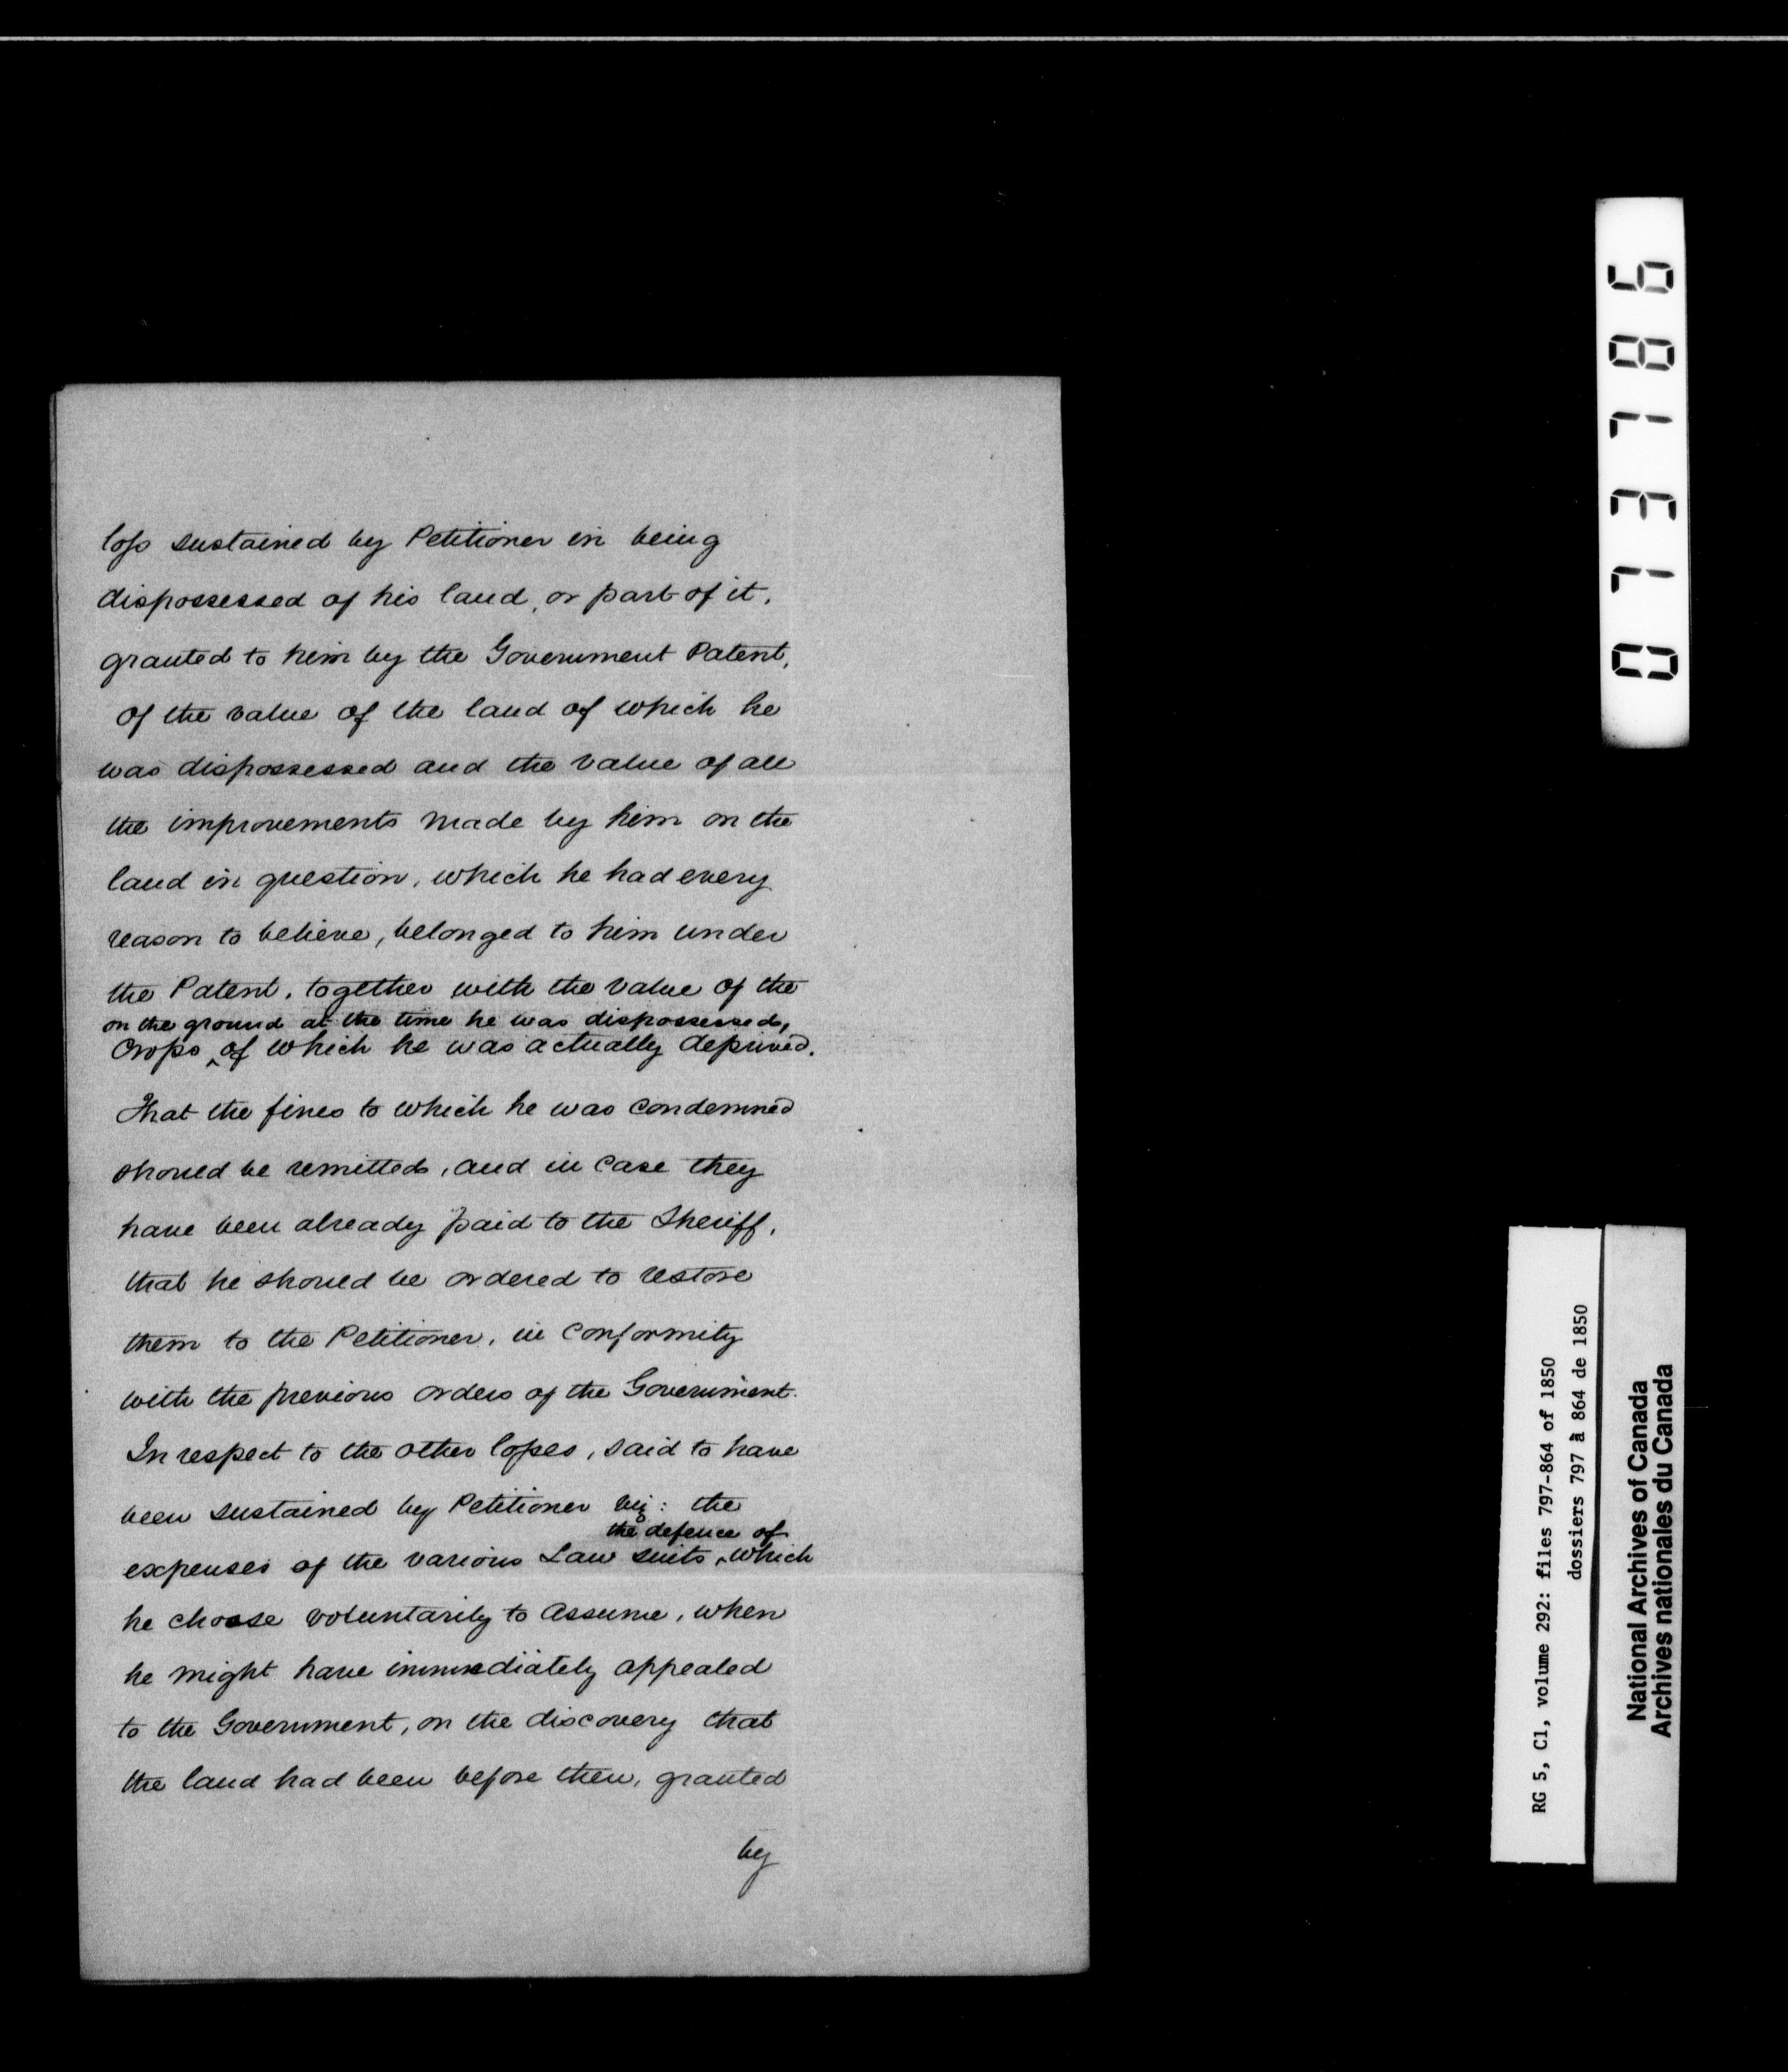 loss sustained by Petitioner in being
dispossessed of his land, or part of it,
granted to him by the Government Patent,
of the value of the land of which he
was dispossessed and the value of all
the improvements made by him on the
land in question, which he had every
reason to believe, belonged to him under
the Patent, together with the value of the
on the ground at the time he was dispossessed,
Crops ^ of which he was actually deprived.
That the fines to which he was condemned
should be remitted, and in case they
have been already paid to the Sheriff,
that he should be ordered to restore
them to the Petitioner, in conformity
with the previous orders of the Government.
In respect to the other losses, said to have
been sustained by Petitioner viz: the
the defence of
expenses of the various Law suits ^ which
he choose voluntarily to assume, when
he might have immediately appealed
to the Government, on the discovery that
the land had been before then, granted
by
073786
RG 5, C1, volume 292: files 797-864 of 1850
dossiers 797 à 864 de 1850
National Archives of Canada
Archives nationales du Canada